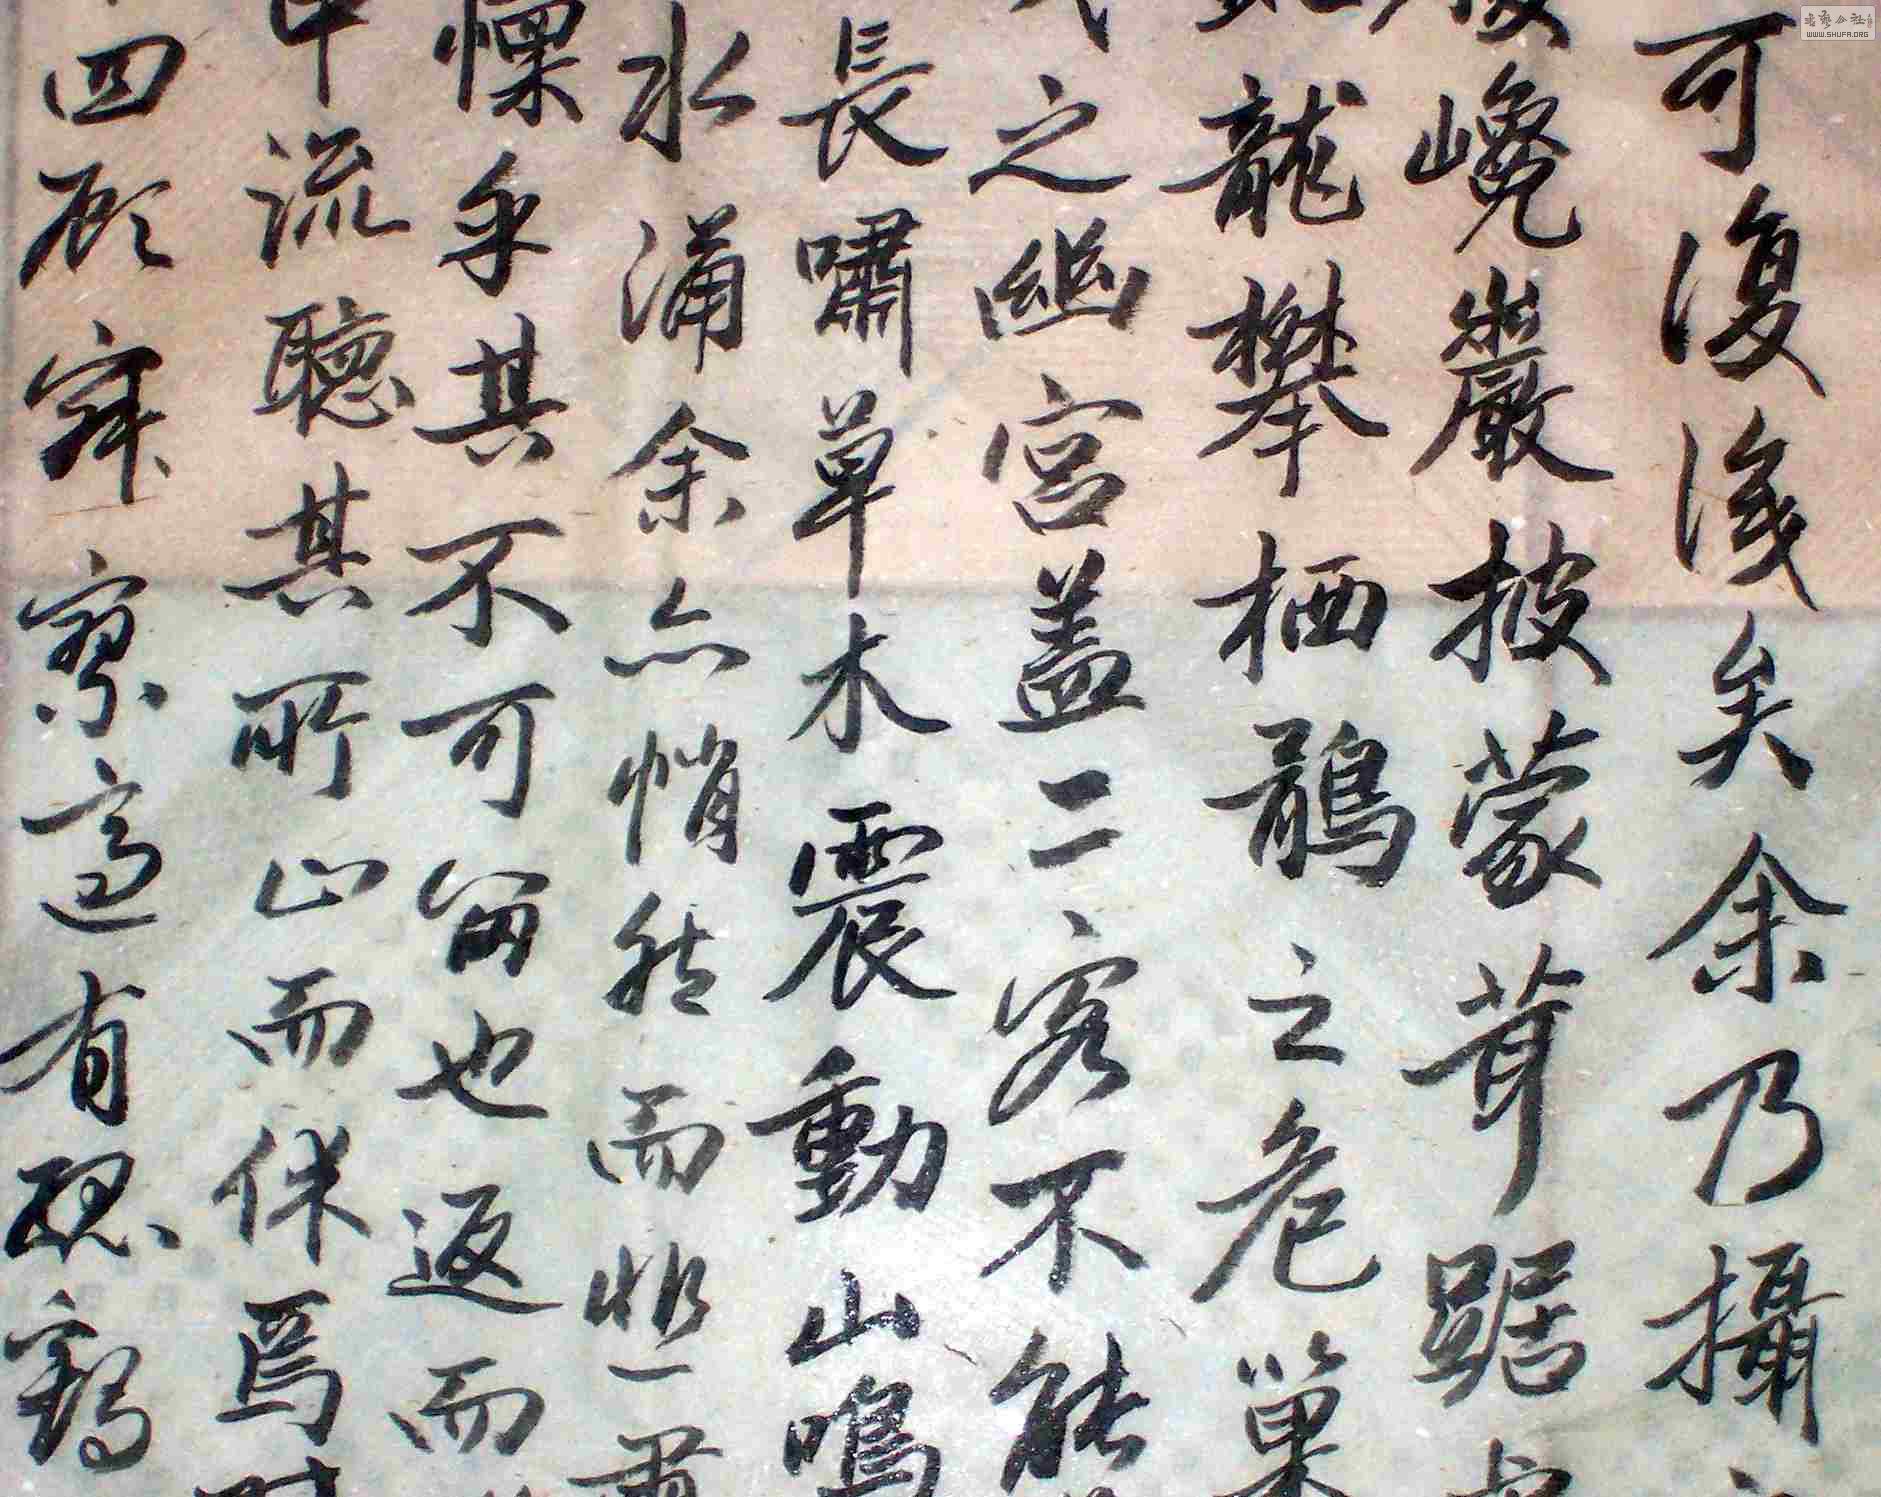 可復識矣余乃攝
巉巖披蒙茸踞
龍攀栖鶻之危巢
之幽宮盖二客不能
長嘯草木震動山鳴
水涌余亦悄然而悲肅
慄乎其不可留也返而
中流聽其所止而休焉
四顧寂寥適有孤鶴
WWW.SHUFA.ORG